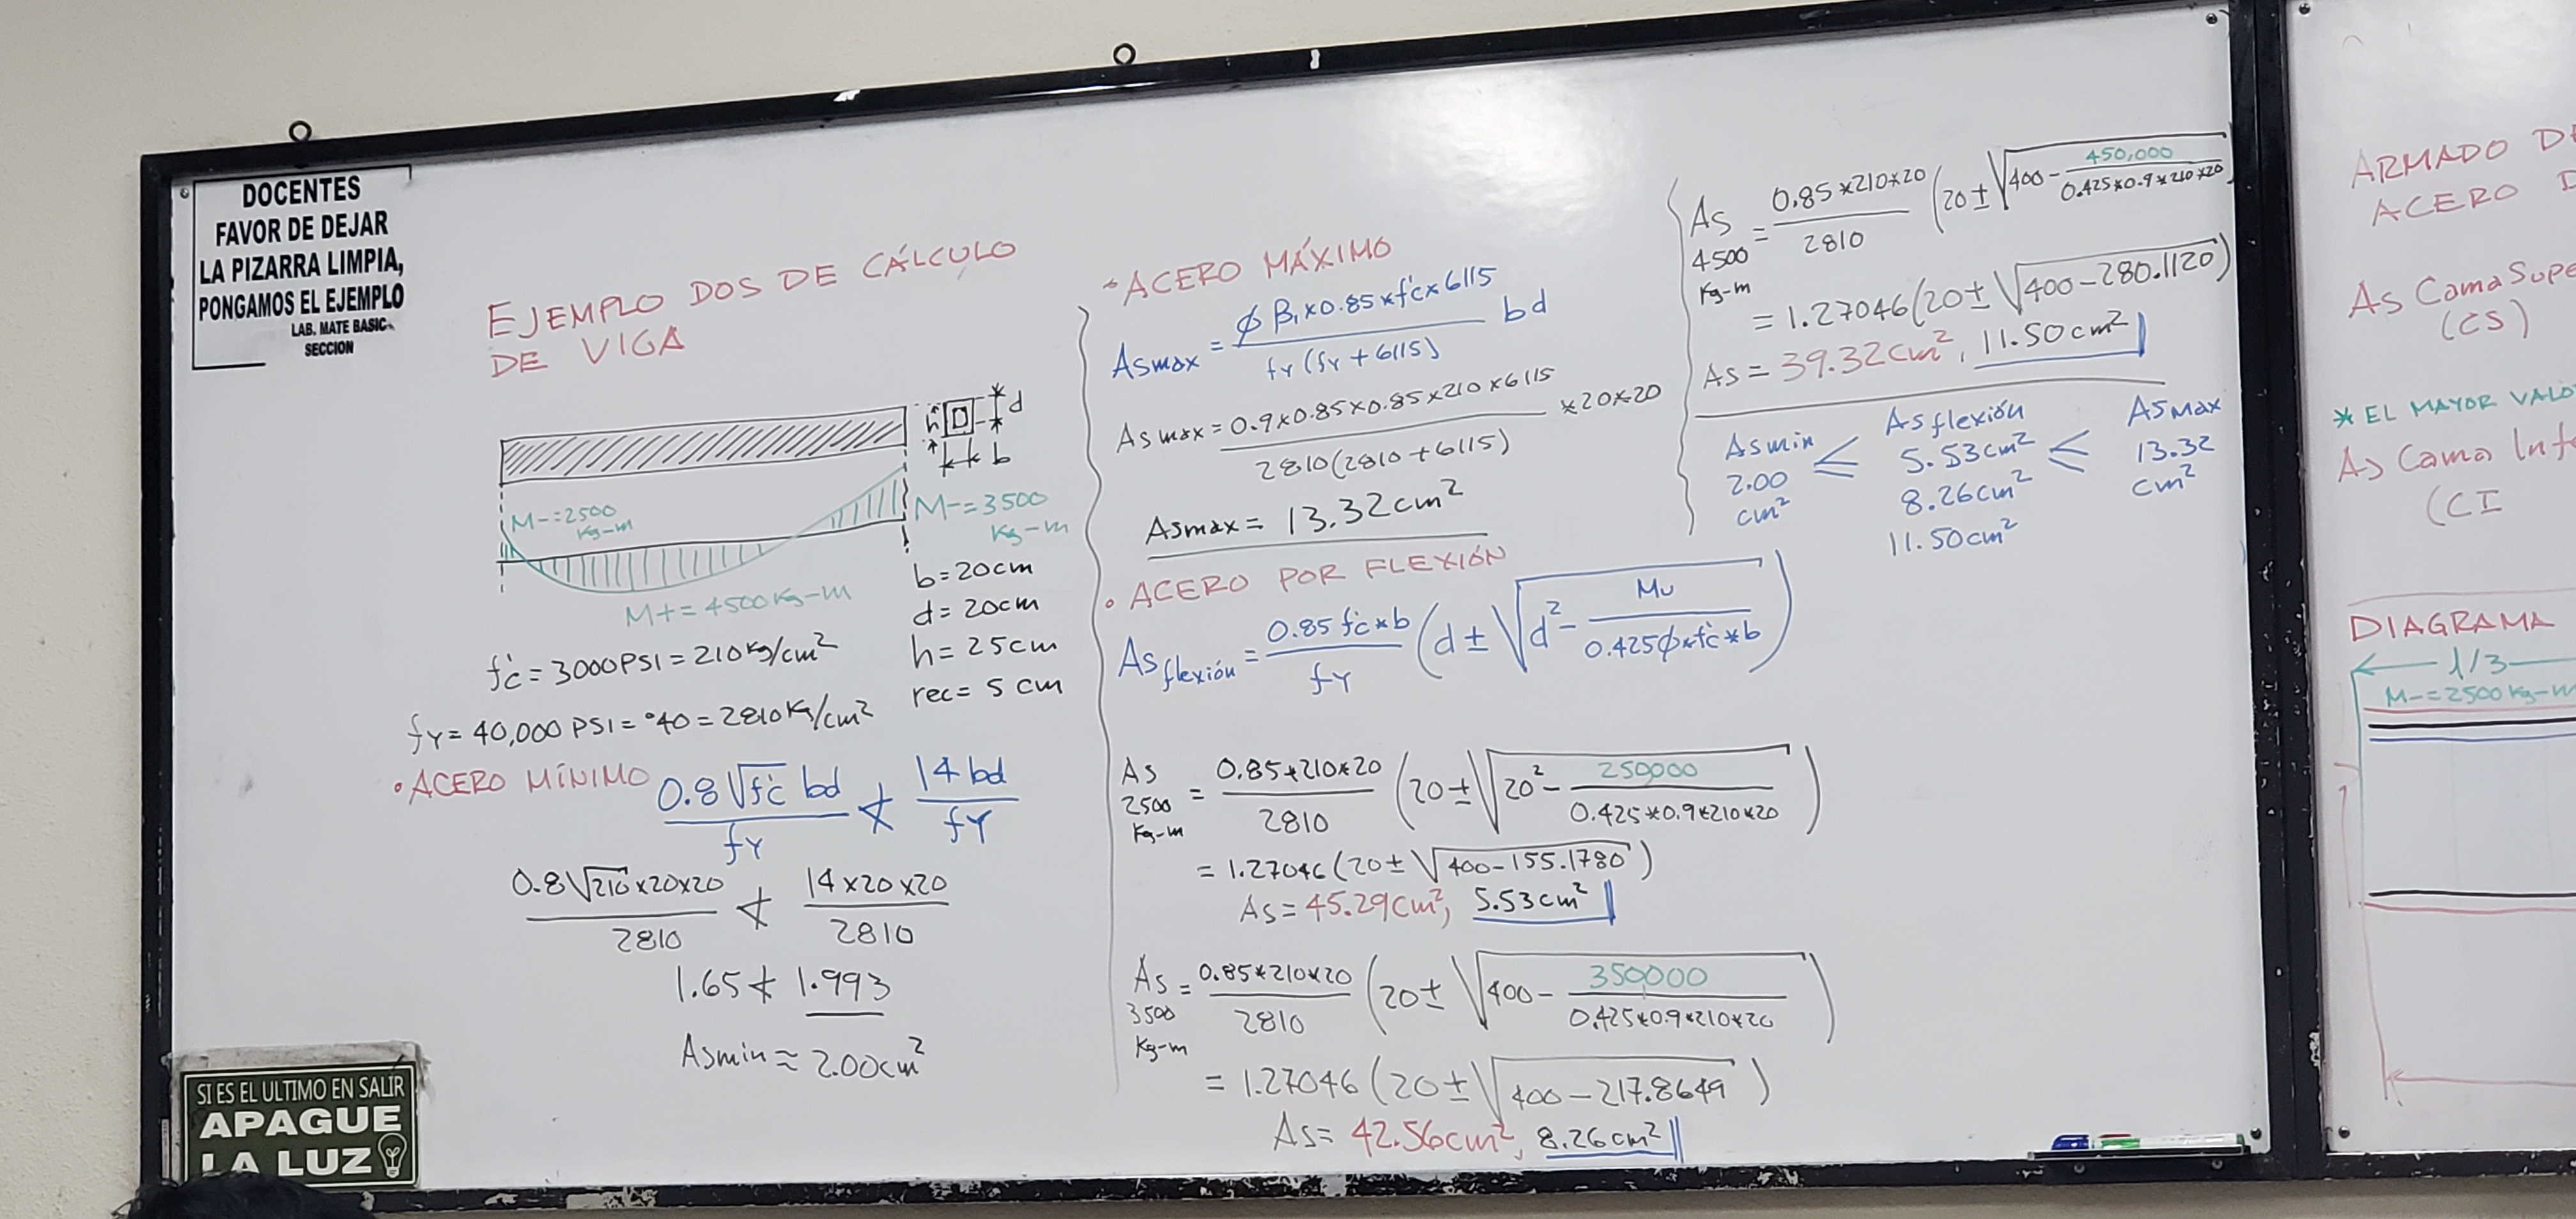 DOCENTES
FAVOR DE DEJAR
LA PIZARRA LIMPIA,
PONGAMOS EL EJEMPLO
LAB. MATE BASIC
SECCION
EJEMPLO DOS DE CÁLCULO
DE VIGA
h d
b
M-=2500
Kg-m
M-=3500
Kg-m
M+=4500Kg-m
b=20cm
d=20cm
h=25cm
rec=5cm
f'c=3000PSI=210Kg/cm²
fy=40,000PSI=°40=2810Kg/cm²
•ACERO MÍNIMO
0.8√f'c bd / fy ≮ 14bd / fy
0.8√210x20x20 / 2810 ≮ 14x20x20 / 2810
1.65 ≮ 1.993
Asmin≈2.00cm²
•ACERO MÁXIMO
Asmax = ϕβ₁x0.85xf'cx6115 / fy(fy+6115) bd
Asmax = 0.9x0.85x0.85x210x6115 / 2810(2810+6115) *20*20
Asmax = 13.32cm²
•ACERO POR FLEXIÓN
As flexión = 0.85f'c*b / fy (d±√d² - Mu / 0.425ϕ*f'c*b)
As 2500 Kg-m = 0.85*210*20 / 2810 (20±√20² - 250,000 / 0.425*0.9*210*20)
= 1.27046(20±√400-155.1780)
As=45.29cm², 5.53cm²
As 3500 Kg-m = 0.85*210*20 / 2810 (20±√400 - 350000 / 0.425*0.9*210*20)
= 1.27046(20±√400-217.8649)
As=42.56cm², 8.26cm²
As 4500 Kg-m = 0.85*210*20 / 2810 (20±√400 - 450,000 / 0.425*0.9*210*20)
= 1.27046(20±√400-280.1120)
As=39.32cm², 11.50cm²
Asmin ≤ Asflexión ≤ Asmax
2.00 5.53cm² 13.32
cm² 8.26cm² cm²
11.50cm²
ARMADO DE
ACERO D
As Cama Supe
(CS)
* EL MAYOR VALO
As Cama Infe
(CI
DIAGRAMA
l/3
M-=2500Kg-m
SI ES EL ULTIMO EN SALIR
APAGUE
LA LUZ